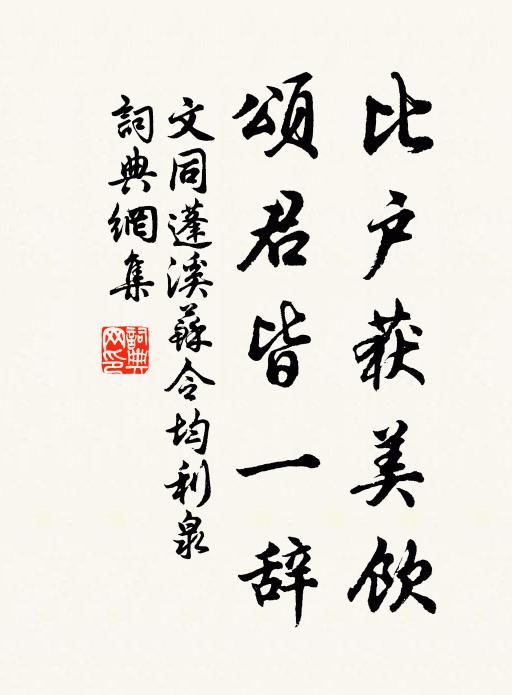 比户获美饮
頌君皆一辞
文同蓬溪蘇令均利泉
詞典網集
詞典網印